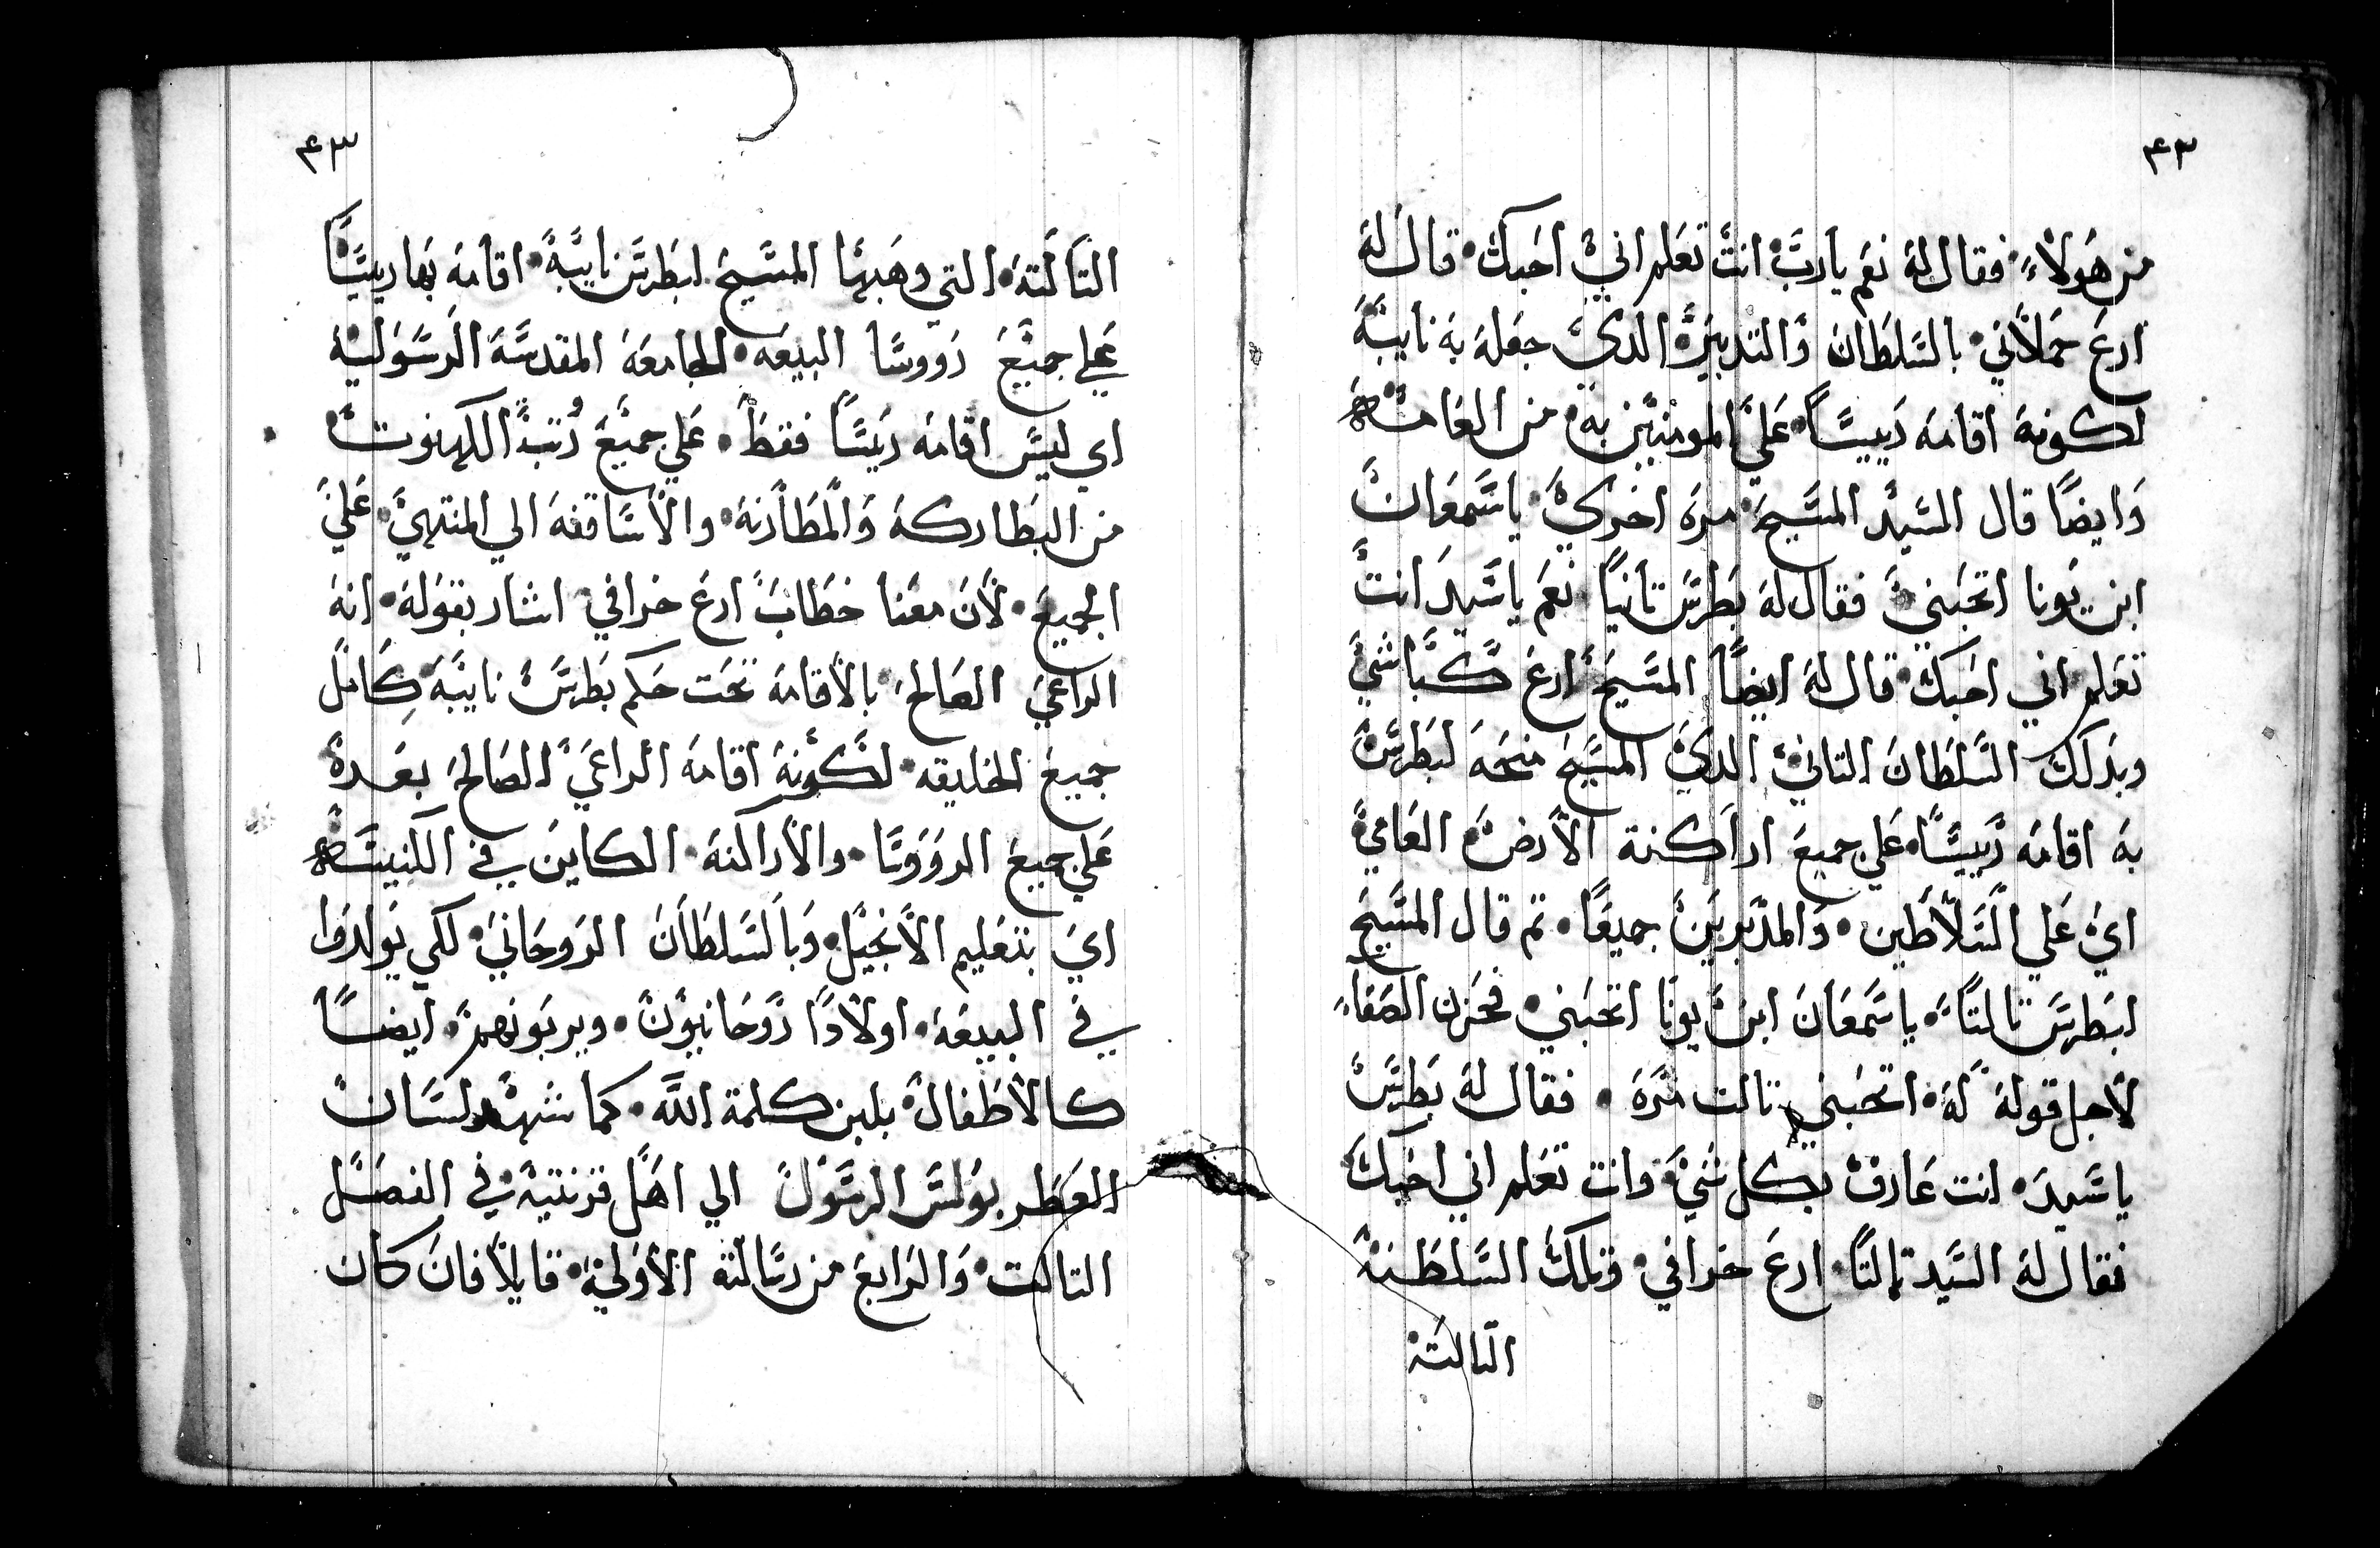 ٤٣
من هولاء۰ فقال له نعم يارب انت تعلم اني احبك۰ قال له
ارع حملاني۰ بالسلطان والتدبير۰ الدي جعله به نايبه
لكونه اقامه رييسا۰ علي المومنين به۰ من العامه
وايضا قال السيد المسيح۰ مره اخري۰ ياسمعان
ابن يونا اتحبني۰ فقال له بطرس تانيا نعم ياسيد انت
تعلم اني احبك۰ قال له ايضا المسيح ارع كباشي
وبدلك السلطان التاني۰ الدي المسيح منحه لبطرس
به اقامه رييسا۰ علي جميع اراكنة الارض العامي
اي علي السلاطين۰ والمدبريين جميعا۰ تم قال المسيح
لبطرس تالتا۰ ياسمعان ابن يونا اتحبني۰ فحزن الصفا
لاجل قوله له۰ اتحبني تالت مره ۰ فقال له بطرس
ياسيد۰ انت عارف بكل شي۰ وانت تعلم اني احبك
فقال له السيد تالتا۰ ارع خرافي۰ وتلك السلطنه
التالته
٤٣
التالته۰ التي وهبها المسيح لبطرس نايبه۰ اقامه بها رييسا
علي جميع رووسا البيعه۰ الجامعه المقدسه الرسوليه
اي ليس اقامه ريسا فقط۰ علي جميع رتب الكهنوت
من البطاركه والمطارنه۰ والاساقفه الي المنتهي۰ علي
الجميع۰ لان معنا خطاب ارع خرافي اشار بقوله۰ انه
الراعي الصالح۰ بالاقامه تحت حكم بطرس نايبه۰ كامل
جميع الخليقه۰ لكونه اقامه الراعي الصالح بعده
علي جميع الرووسا۰ والاراكنه۰ الكاين في الكنيسه
اي بتعليم الانجيل۰ وبالسلطان الروحاني۰ لكي يولدوا
في البيعه۰ اولادا روحانيون۰ ويربونهم۰ ايضا
كالاطفال۰ بلبن كلمة الله۰ كما شهد لسان
العطر بولس الرسول الي اهل قرنتيه۰ في الفصل
التالت۰ والرابع من رسالته الاولي۰ قايلا فان كان